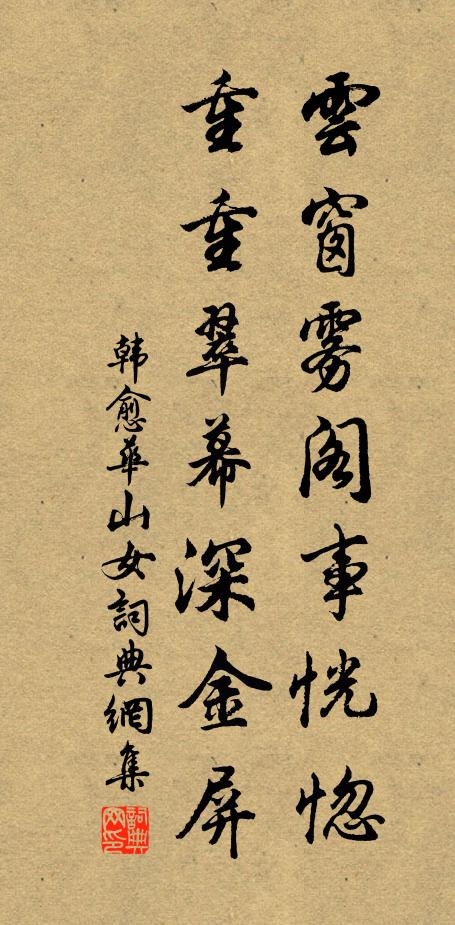 雲窗雾阁事恍惚
重重翠幕深金屏
韩愈華山女詞典網集
詞典网印